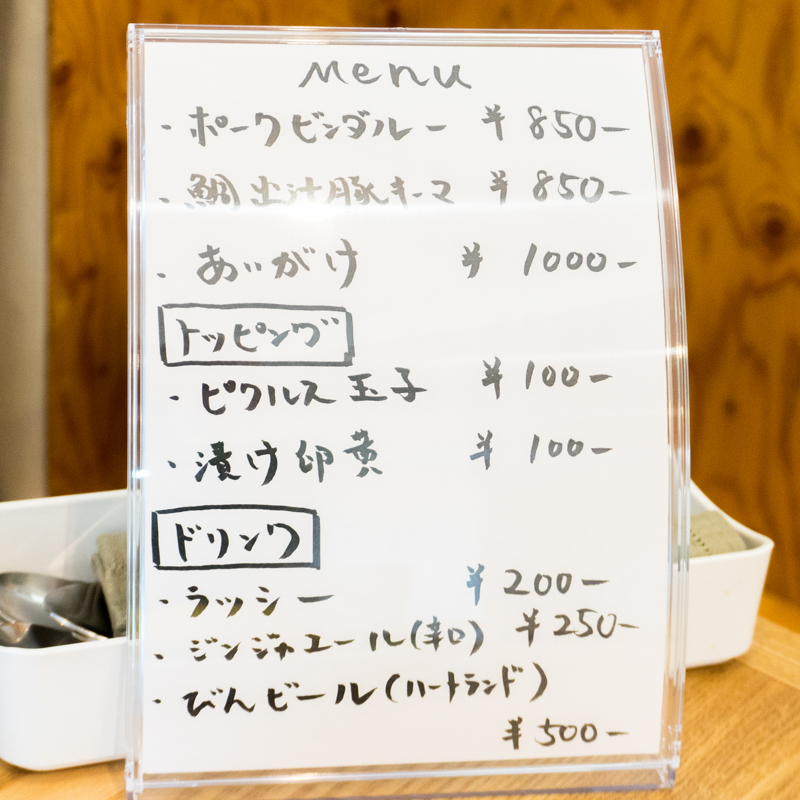 Menu
・ポークビンダルー ¥850-
・鯛出汁豚キーマ ¥850-
・あいがけ ¥1000-
トッピング
・ピクルス玉子 ¥100-
・漬け卵黄 ¥100-
ドリンク
・ラッシー ¥200-
・ジンジャエール(辛口) ¥250-
・びんビール(ハートランド)
¥500-